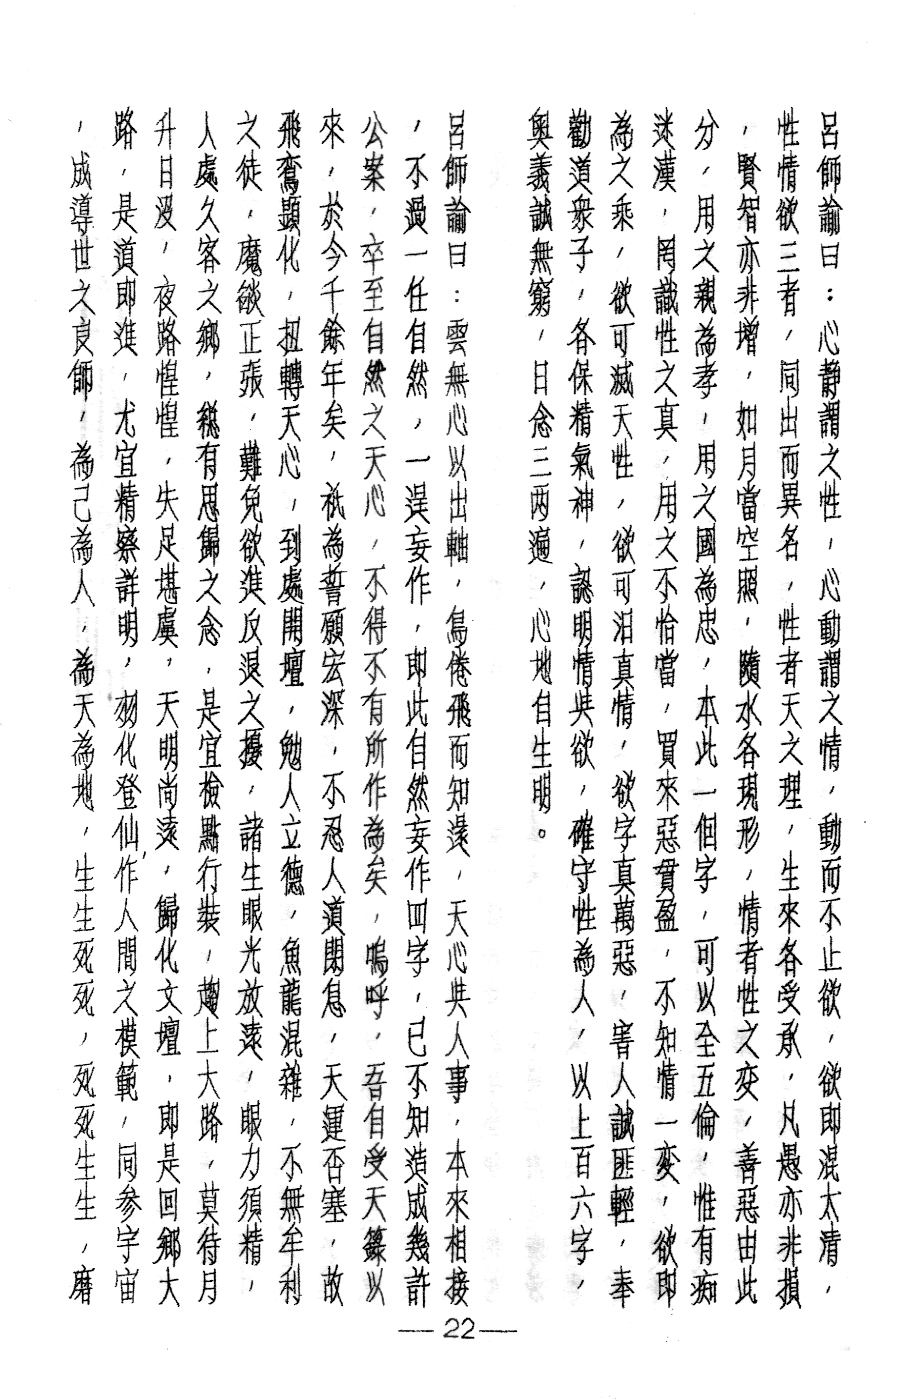 呂師諭曰：心靜謂之性，心動謂之情，動而不止欲，欲即混太清，
性情欲三者，同出而異名，性者天之理，生來各受承，凡愚亦非損
，賢智亦非增，如月當空照，隨水各現形，情者性之変，善惡由此
分，用之親為孝，用之國為忠，本此一個字，可以全五倫，惟有痴
迷漢，罔識性之真，用之不恰當，買來惡貫盈，不知情一変，欲即
為之乘，欲可滅天性，欲可汨真情，欲字真萬惡，害人誠匪輕，奉
勸道衆子，各保精氣神，認明情與欲，確守性為人，以上百六字，
奧義誠無窮，日念三两遍，心地自生明。
呂師諭曰：雲無心以出軸，鳥倦飛而知還，天心與人事，本來相接
，不過一任自然，一誤妄作，即此自然妄作四字，已不知造成幾許
公案，卒至自然之天心，不得不有所作為矣，嗚呼，吾自受天籙以
來，於今千餘年矣，祇為誓願宏深，不忍人道閉息，天運否塞，故
飛鸞顯化，扭轉天心，到處開壇，勉人立德，魚龍混雜，不無牟利
之徒，魔燄正張，難免欲進反退之擾，諸生眼光放遠，眼力須精，
人處久客之鄉，總有思歸之念，是宜檢點行裝，趨上大路，莫待月
升日沒，夜路惶惶，失足堪虞，天明尚遠，歸化文壇，即是回鄉大
路，是道即進，尤宜精察詳明，羽化登仙，作人間之模範，同參宇宙
，成導世之良師，為己為人，為天為地，生生死死，死死生生，磨
— 22 —